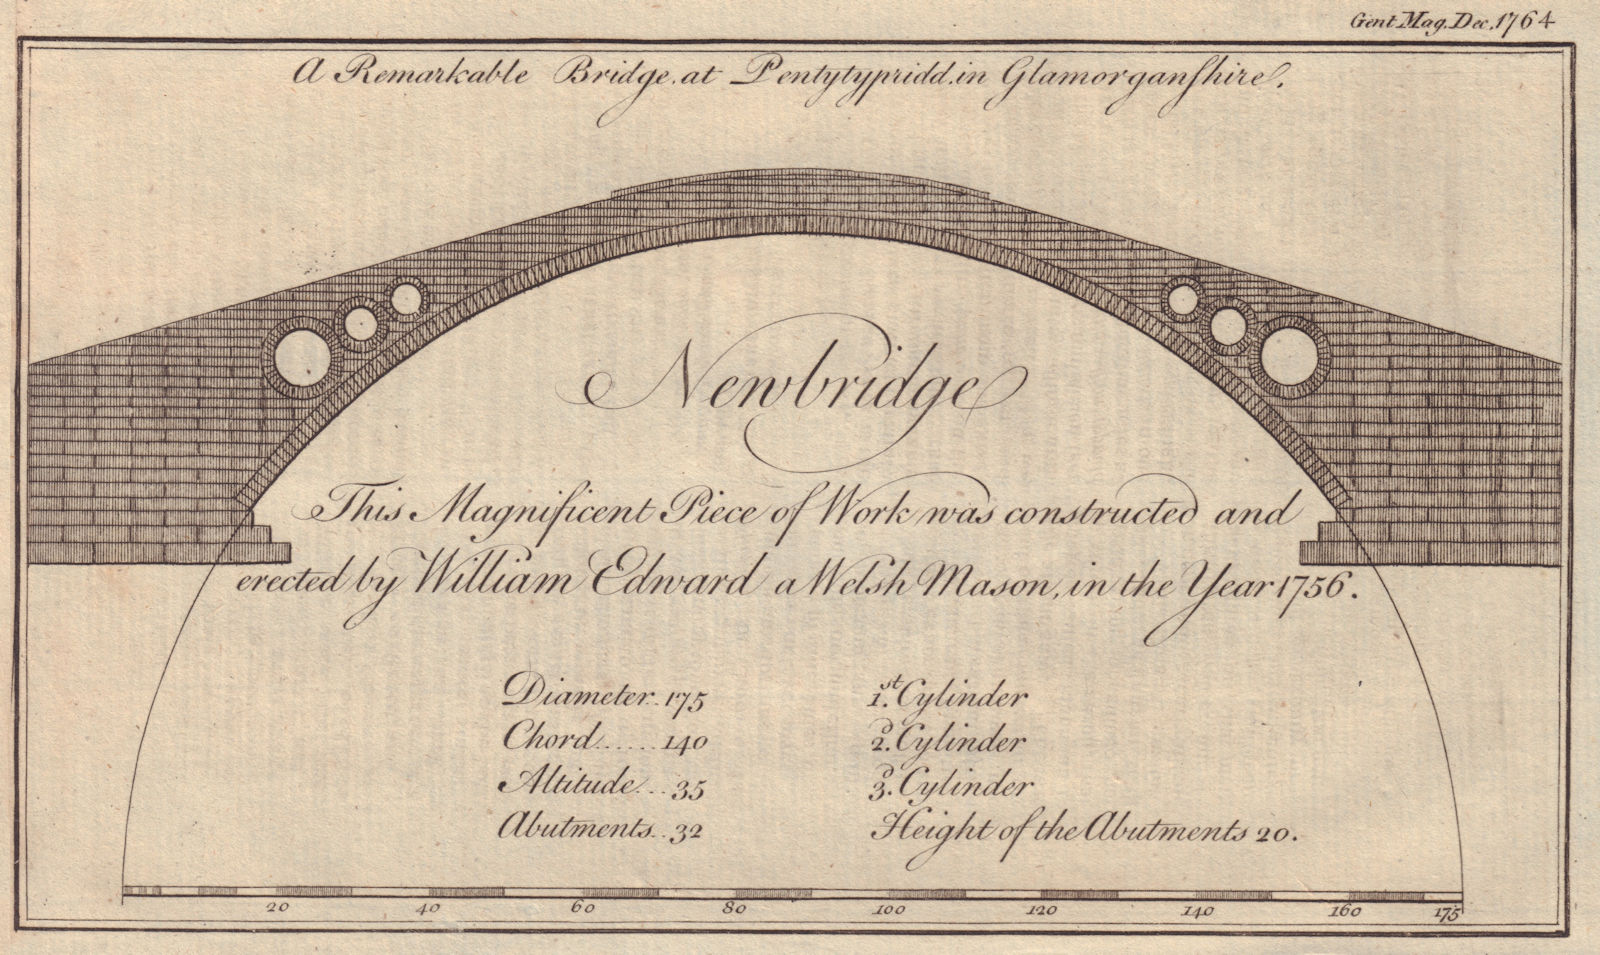 Gent Mag. Dec. 1764
A Remarkable Bridge. at Pentytypridd. in Glamorganſhire.
Newbridge
This Magnificent Piece of Work was constructed and
erected by William Edward a Welsh Mason, in the Year 1756.
Diameter .. 175
Chord ...... 140
Altitude ... 35
Abutments .. 32
1.st Cylinder
2.d Cylinder
3.d Cylinder
Height of the Abutments 20.
20 40 60 80 100 120 140 160 175